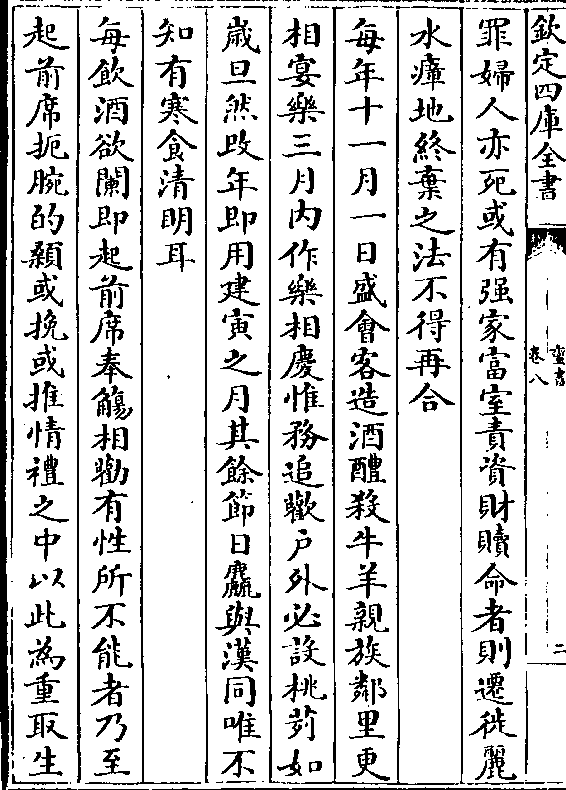 欽定四庫全書
蠻書
卷八
二
罪婦人亦死或有强家富室責資財贖命者則遷徙麗
水瘴地終棄之法不得再合
每年十一月一日盛會客造酒醴殺牛羊親族鄰里更
相宴樂三月内作樂相慶惟務追歡户外必設桃茢如
歲旦然改年即用建寅之月其餘節日麤與漢同唯不
知有寒食清明耳
每飲酒欲闌即起前席奉觴相勸有性所不能者乃至
起前席扼腕的顙或挽或推情禮之中以此為重取生